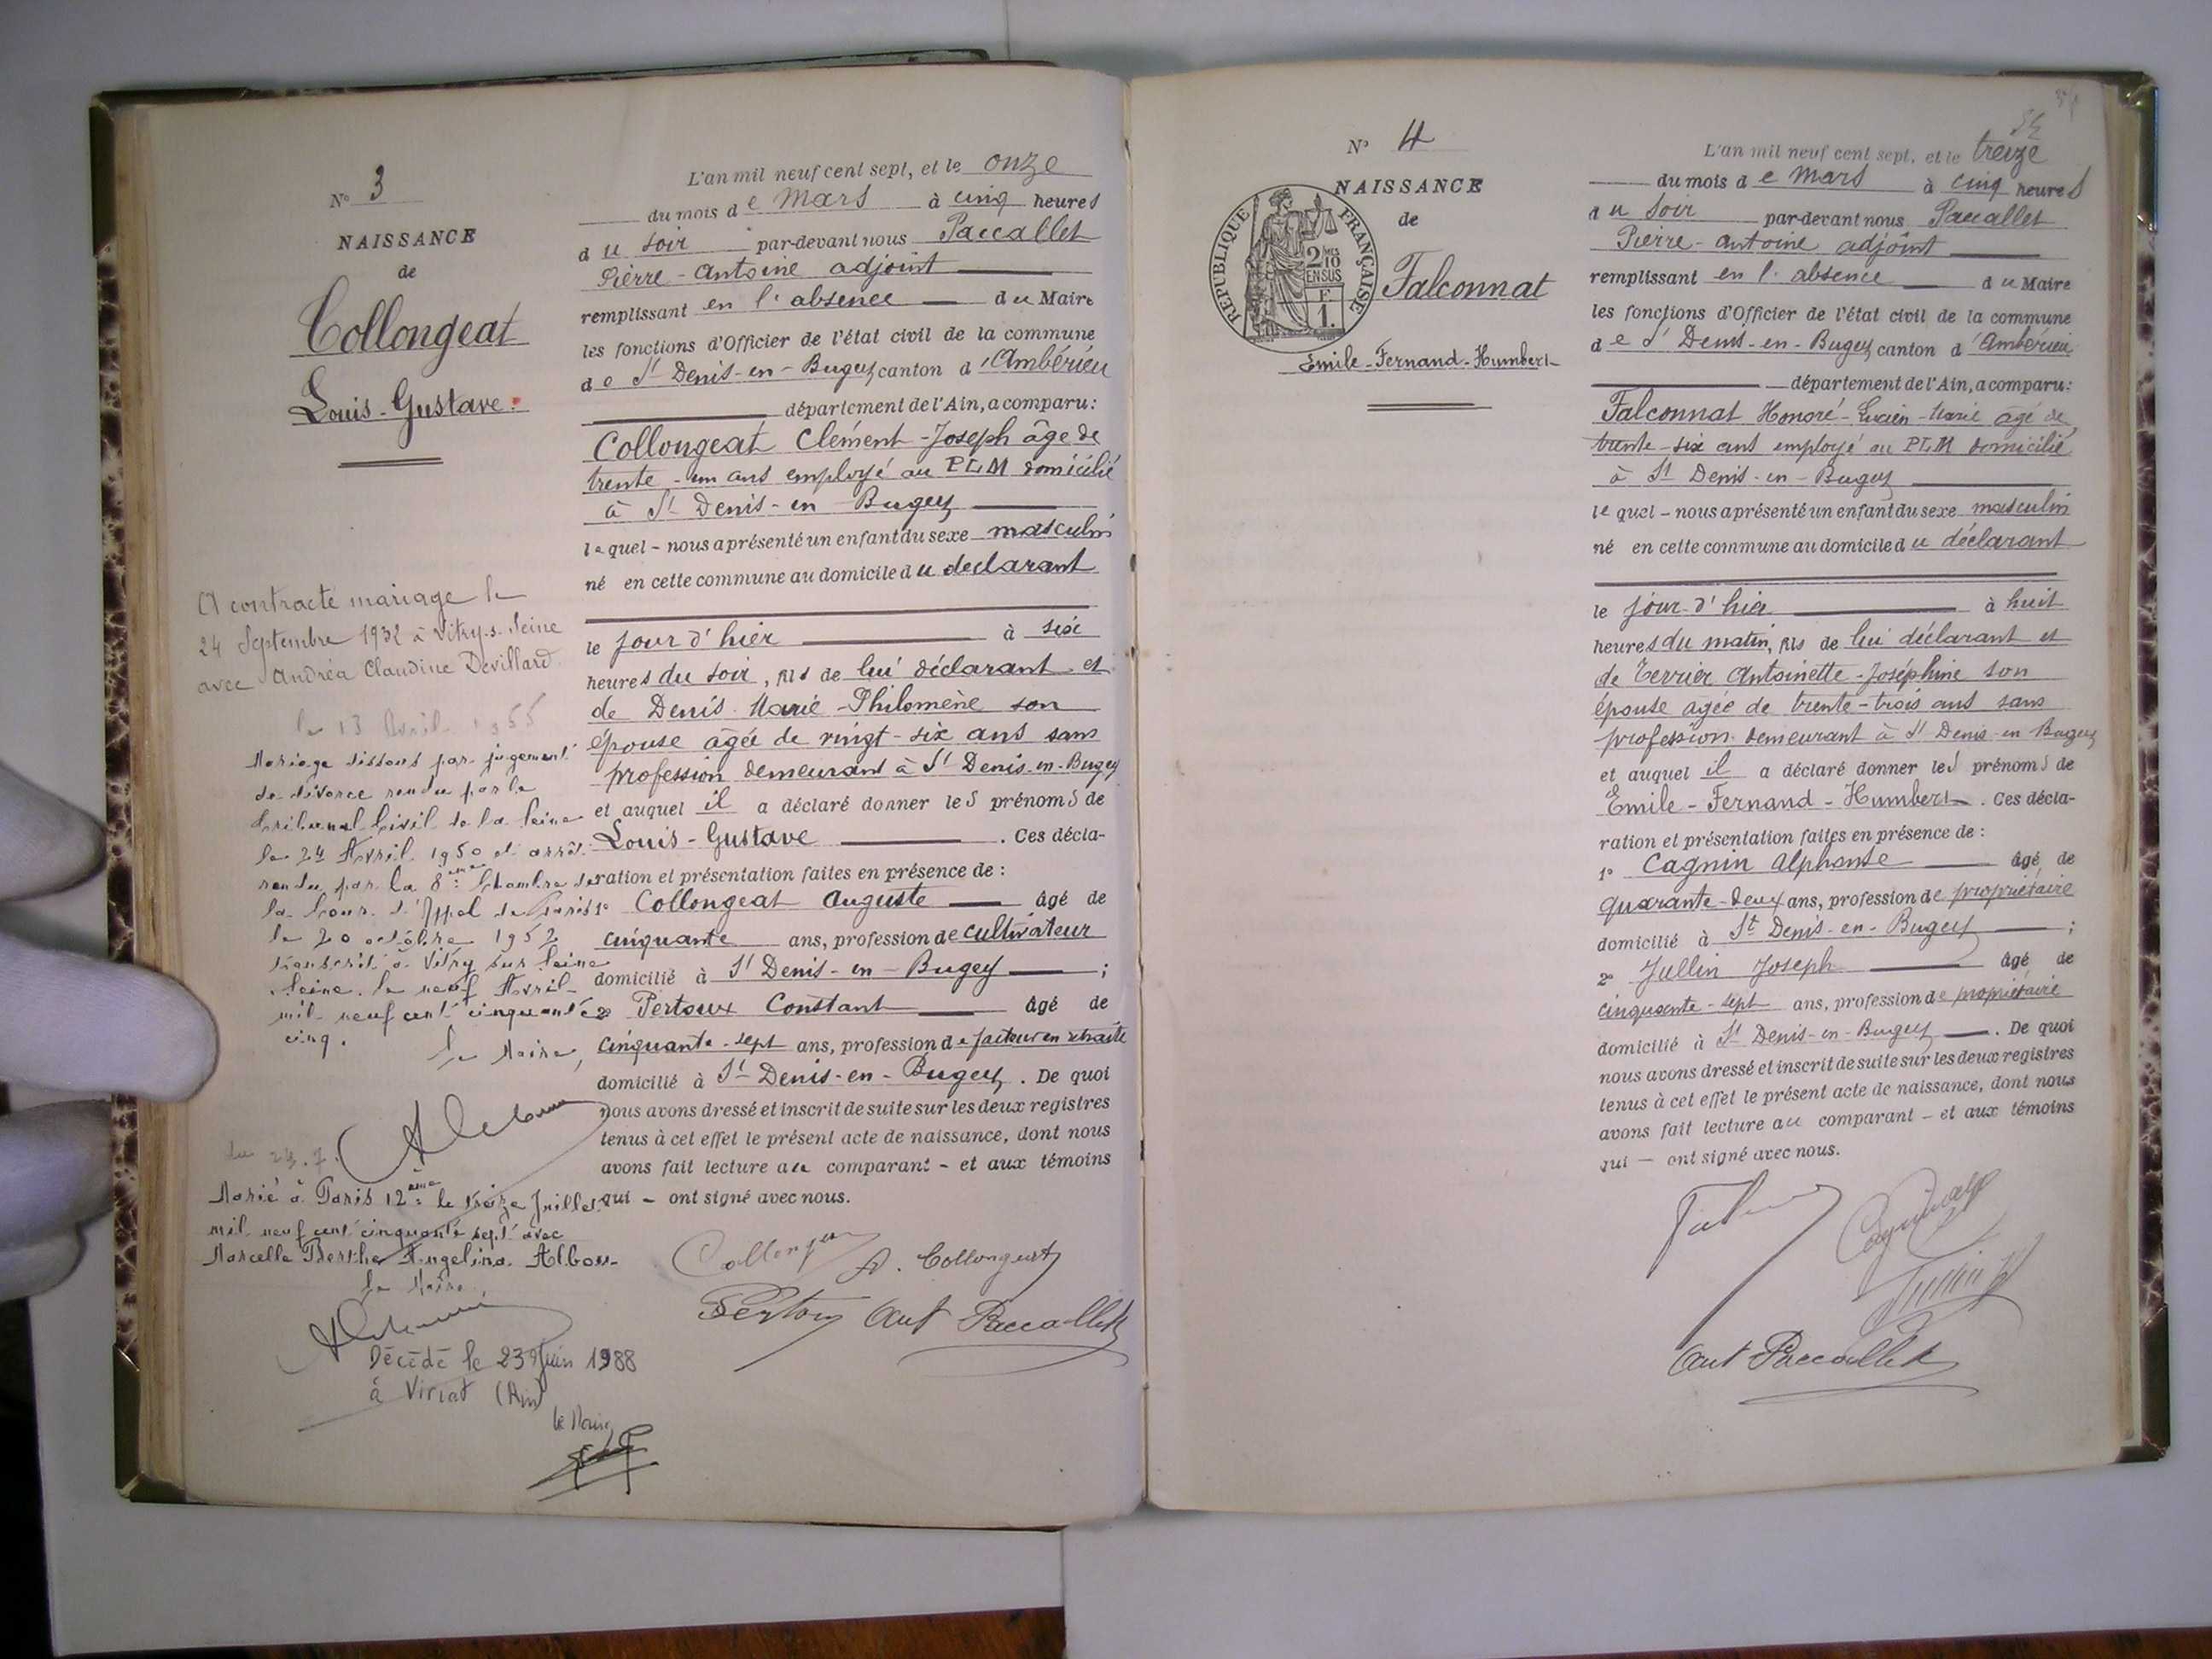 N° 3
NAISSANCE
de
Collongeat
Louis-Gustave.
A contracté mariage le
24 Septembre 1932 à Vitry-s-Seine
avec Andréa Claudine Devillard
le 13 Avril 1955
Mariage dissous par jugement
de divorce rendu par le
Tribunal Civil de la Seine
le 24 Avril 1950 et arrêt
rendu par la 8ème Chambre de
la Cour d'Appel de Paris
le 20 octobre 1952
transcrit à Vitry sur Seine
Seine le neuf Avril
mil neuf cent cinquante
cinq.
Le Maire,
Marié à Paris 12ème le treize Juillet
mil neuf cent cinquante sept avec
Marcelle Berthe Angelina
Le Maire,
Décédé le 23 Juin 1988
à Viriat (Ain)
le Maire
L'an mil neuf cent sept, et le onze
du mois de Mars à cinq heures
du soir par-devant nous Paccallet
Pierre-Antoine adjoint
remplissant en l'absence du Maire
les fonctions d'Officier de l'état civil de la commune
de St Denis-en-Bugey canton d'Ambérieu
département de l'Ain, a comparu:
Collongeat Clément-Joseph âgé de
trente-un ans employé au PLM domicilié
à St Denis-en Bugey
lequel - nous a présenté un enfant du sexe masculin
né en cette commune au domicile du déclarant
le jour d'hier à six
heures du soir, fils de lui déclarant et
de Denis Marie-Philomène son
épouse âgée de vingt-six ans sans
profession demeurant à St Denis-en-Bugey
et auquel il a déclaré donner les prénoms de
Louis-Gustave. Ces décla-
ration et présentation faites en présence de :
1° Collongeat Auguste âgé de
cinquante ans, profession de cultivateur
domicilié à St Denis-en-Bugey ;
2° Pertoux Constant âgé de
cinquante-sept ans, profession de facteur en retraite
domicilié à St Denis-en-Bugey. De quoi
nous avons dressé et inscrit de suite sur les deux registres
tenus à cet effet le présent acte de naissance, dont nous
avons fait lecture au comparant - et aux témoins
qui - ont signé avec nous.
A. Collongeat
Ant Paccallet
N° 4
NAISSANCE
de
Falconnat
Emile-Fernand-Humbert
REPUBLIQUE FRANÇAISE
2/10 EN SUS
1.
L'an mil neuf cent sept, et le treize
du mois de Mars à cinq heures
du soir par-devant nous Paccallet
Pierre-Antoine adjoint
remplissant en l'absence du Maire
les fonctions d'Officier de l'état civil de la commune
de St Denis-en-Bugey canton d'Ambérieu
département de l'Ain, a comparu:
Falconnat Honoré-Lucien-Marie âgé de
trente-six ans employé au PLM domicilié
à St Denis-en-Bugey
lequel - nous a présenté un enfant du sexe masculin
né en cette commune au domicile du déclarant
le jour d'hier à huit
heures du matin, fils de lui déclarant et
de Terrier Antoinette-Joséphine son
épouse âgée de trente-trois ans sans
profession demeurant à St Denis-en Bugey
et auquel il a déclaré donner les prénoms de
Emile-Fernand-Humbert. Ces décla-
ration et présentation faites en présence de :
1° Cagnin Alphonse âgé de
quarante-deux ans, profession de propriétaire
domicilié à St Denis-en-Bugey ;
2° Jullin Joseph âgé de
cinquante-sept ans, profession de propriétaire
domicilié à St Denis-en-Bugey. De quoi
nous avons dressé et inscrit de suite sur les deux registres
tenus à cet effet le présent acte de naissance, dont nous
avons fait lecture au comparant - et aux témoins
qui - ont signé avec nous.
Ant Paccallet